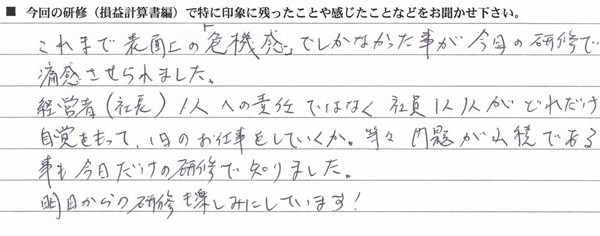 ■ 今回の研修（損益計算書編）で特に印象に残ったことや感じたことなどをお聞かせ下さい。
これまで表面上の「危機感」でしかなかった事が今日の研修で
痛感させられました。
経営者（社長）1人への責任ではなく社員1人1人がどれだけ
自覚をもって、1日のお仕事をしていくか。等々問題が山積である
事も今日だけの研修で知りました。
明日からの研修も楽しみにしています！